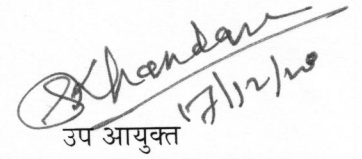 SKhandare
17/12/20
उप आयुक्त